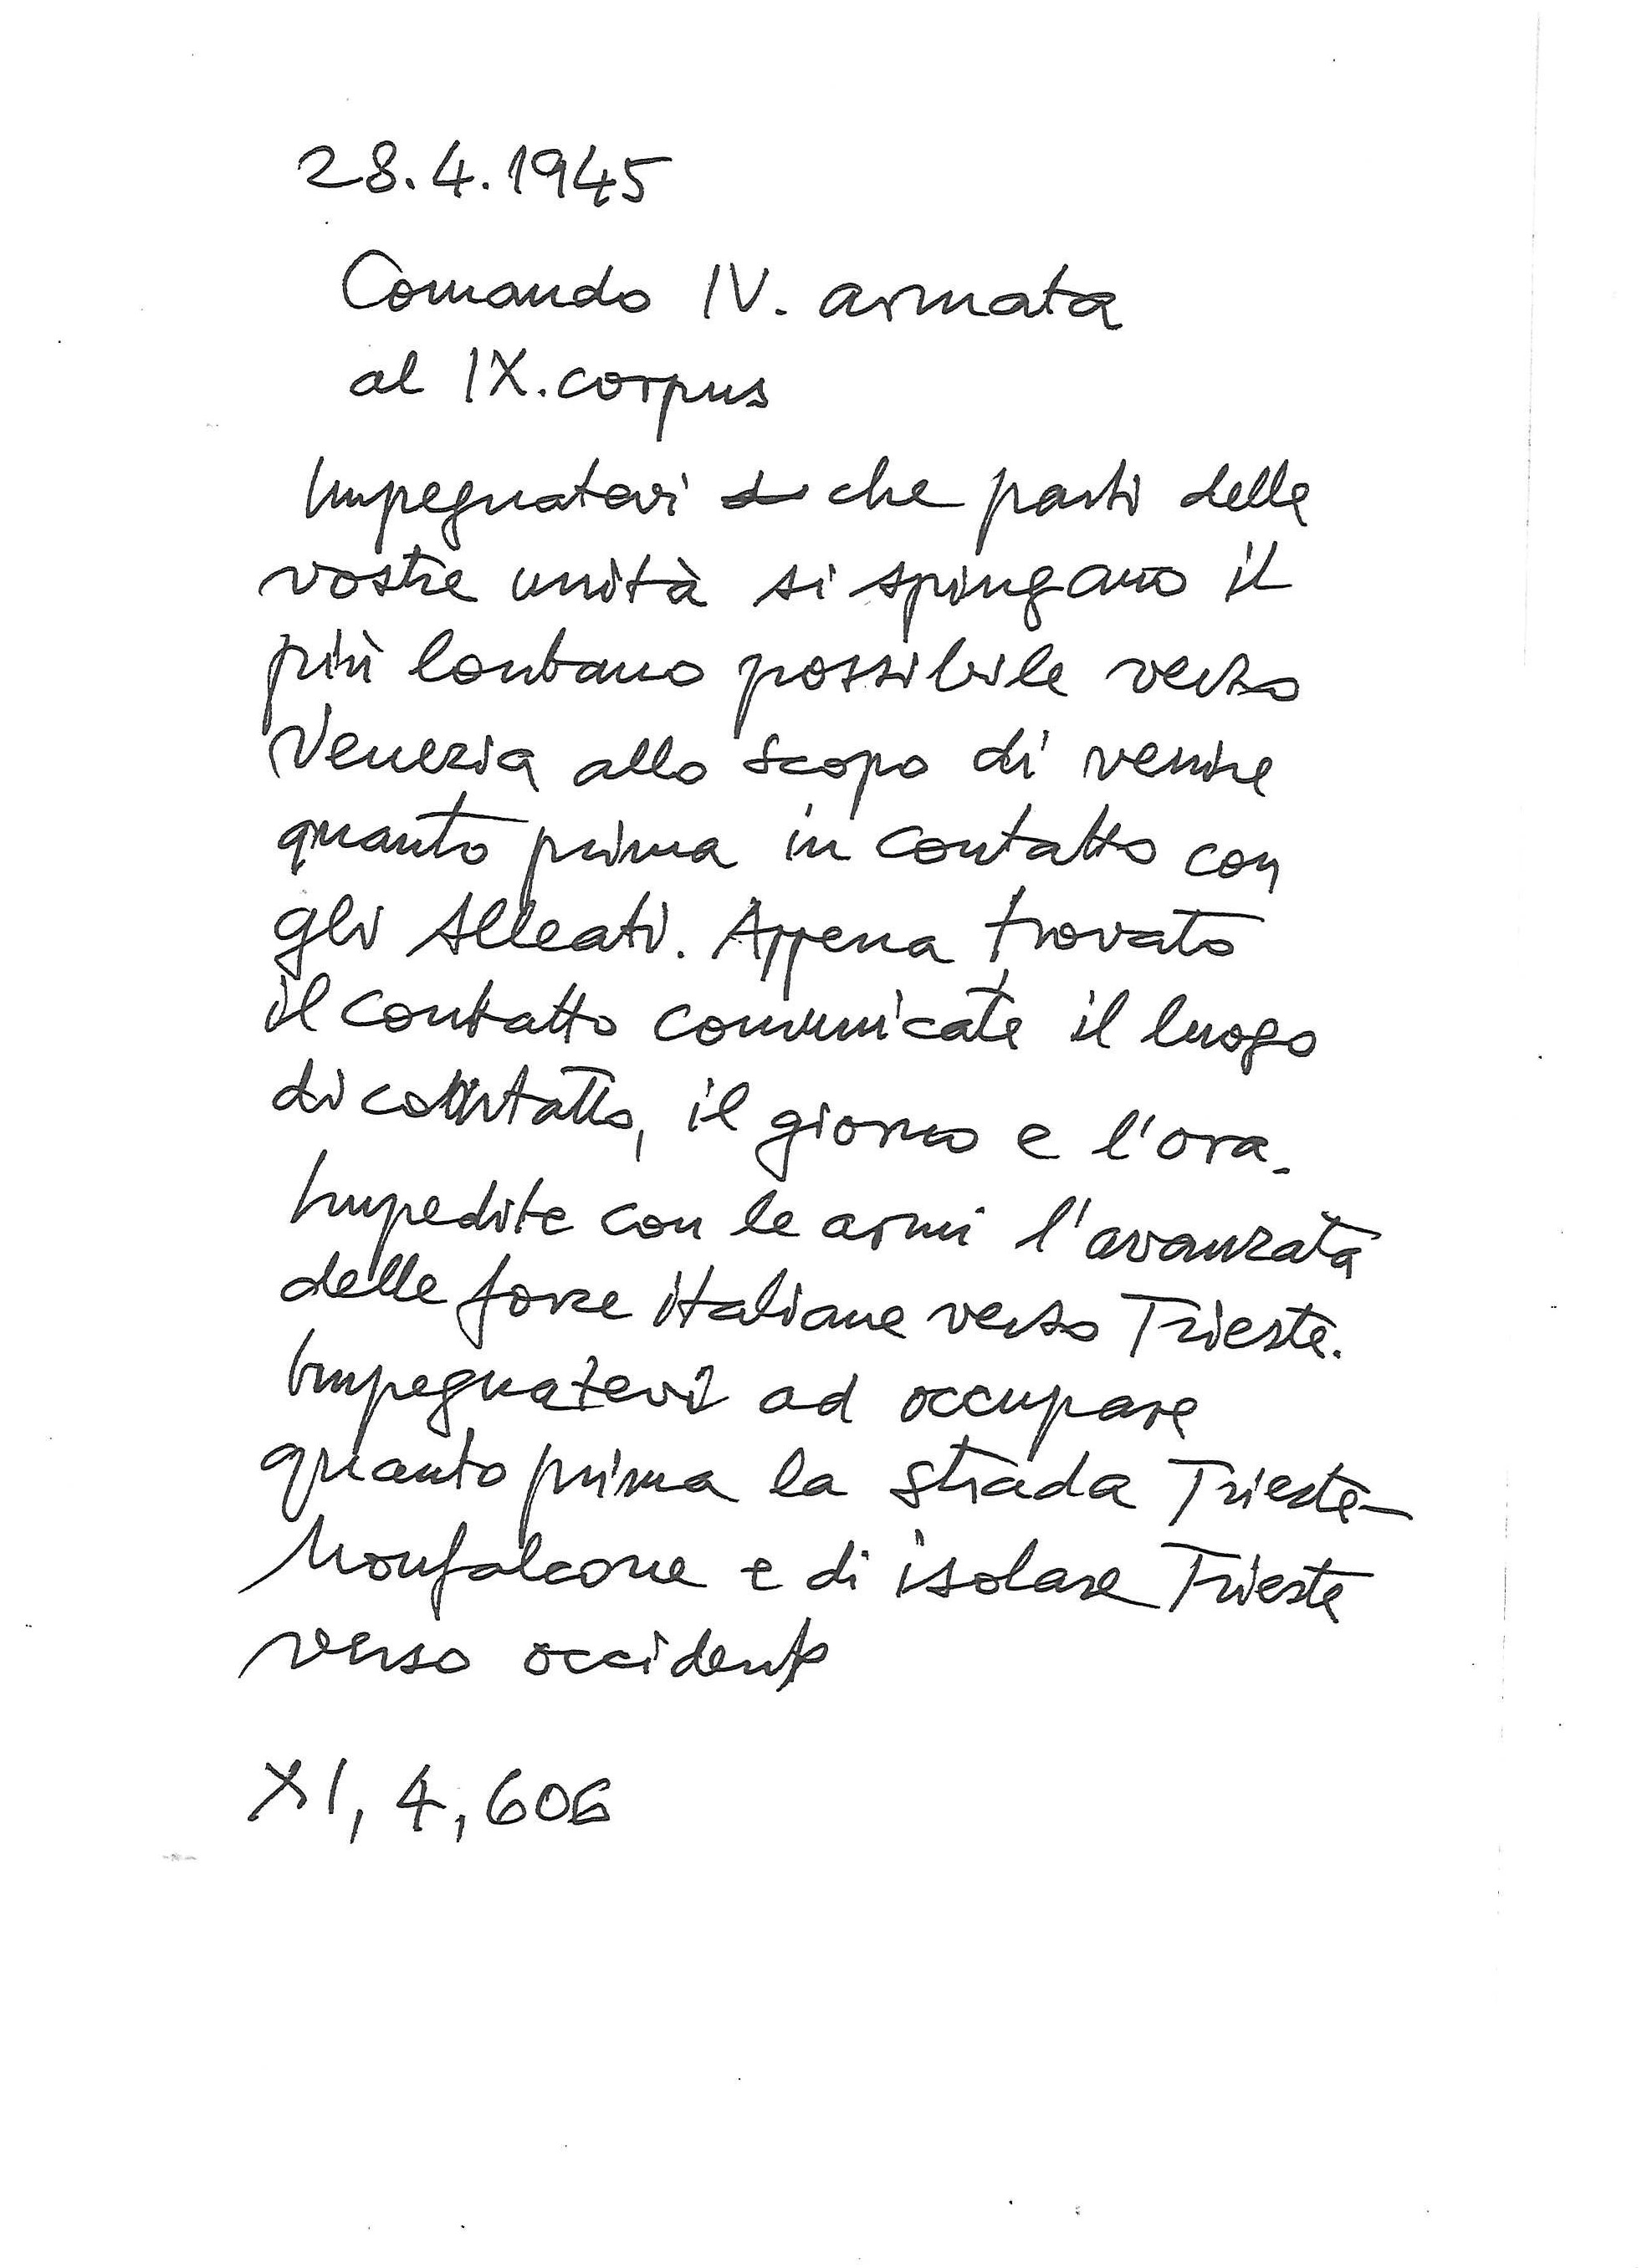 28.4.1945
Comando IV. armata
al IX. corpus
Impegnatevi che parti delle
vostre unità si spingano il
più lontano possibile verso
Venezia allo scopo di venire
quanto prima in contatto con
gli Alleati. Appena trovato
il contatto comunicate il luogo
di contatto, il giorno e l'ora.
Impedite con le armi l'avanzata
delle forze italiane verso Trieste.
Impegnatevi ad occupare
quanto prima la strada Trieste-
Monfalcone e di isolare Trieste
verso occidente
XI, 4, 606